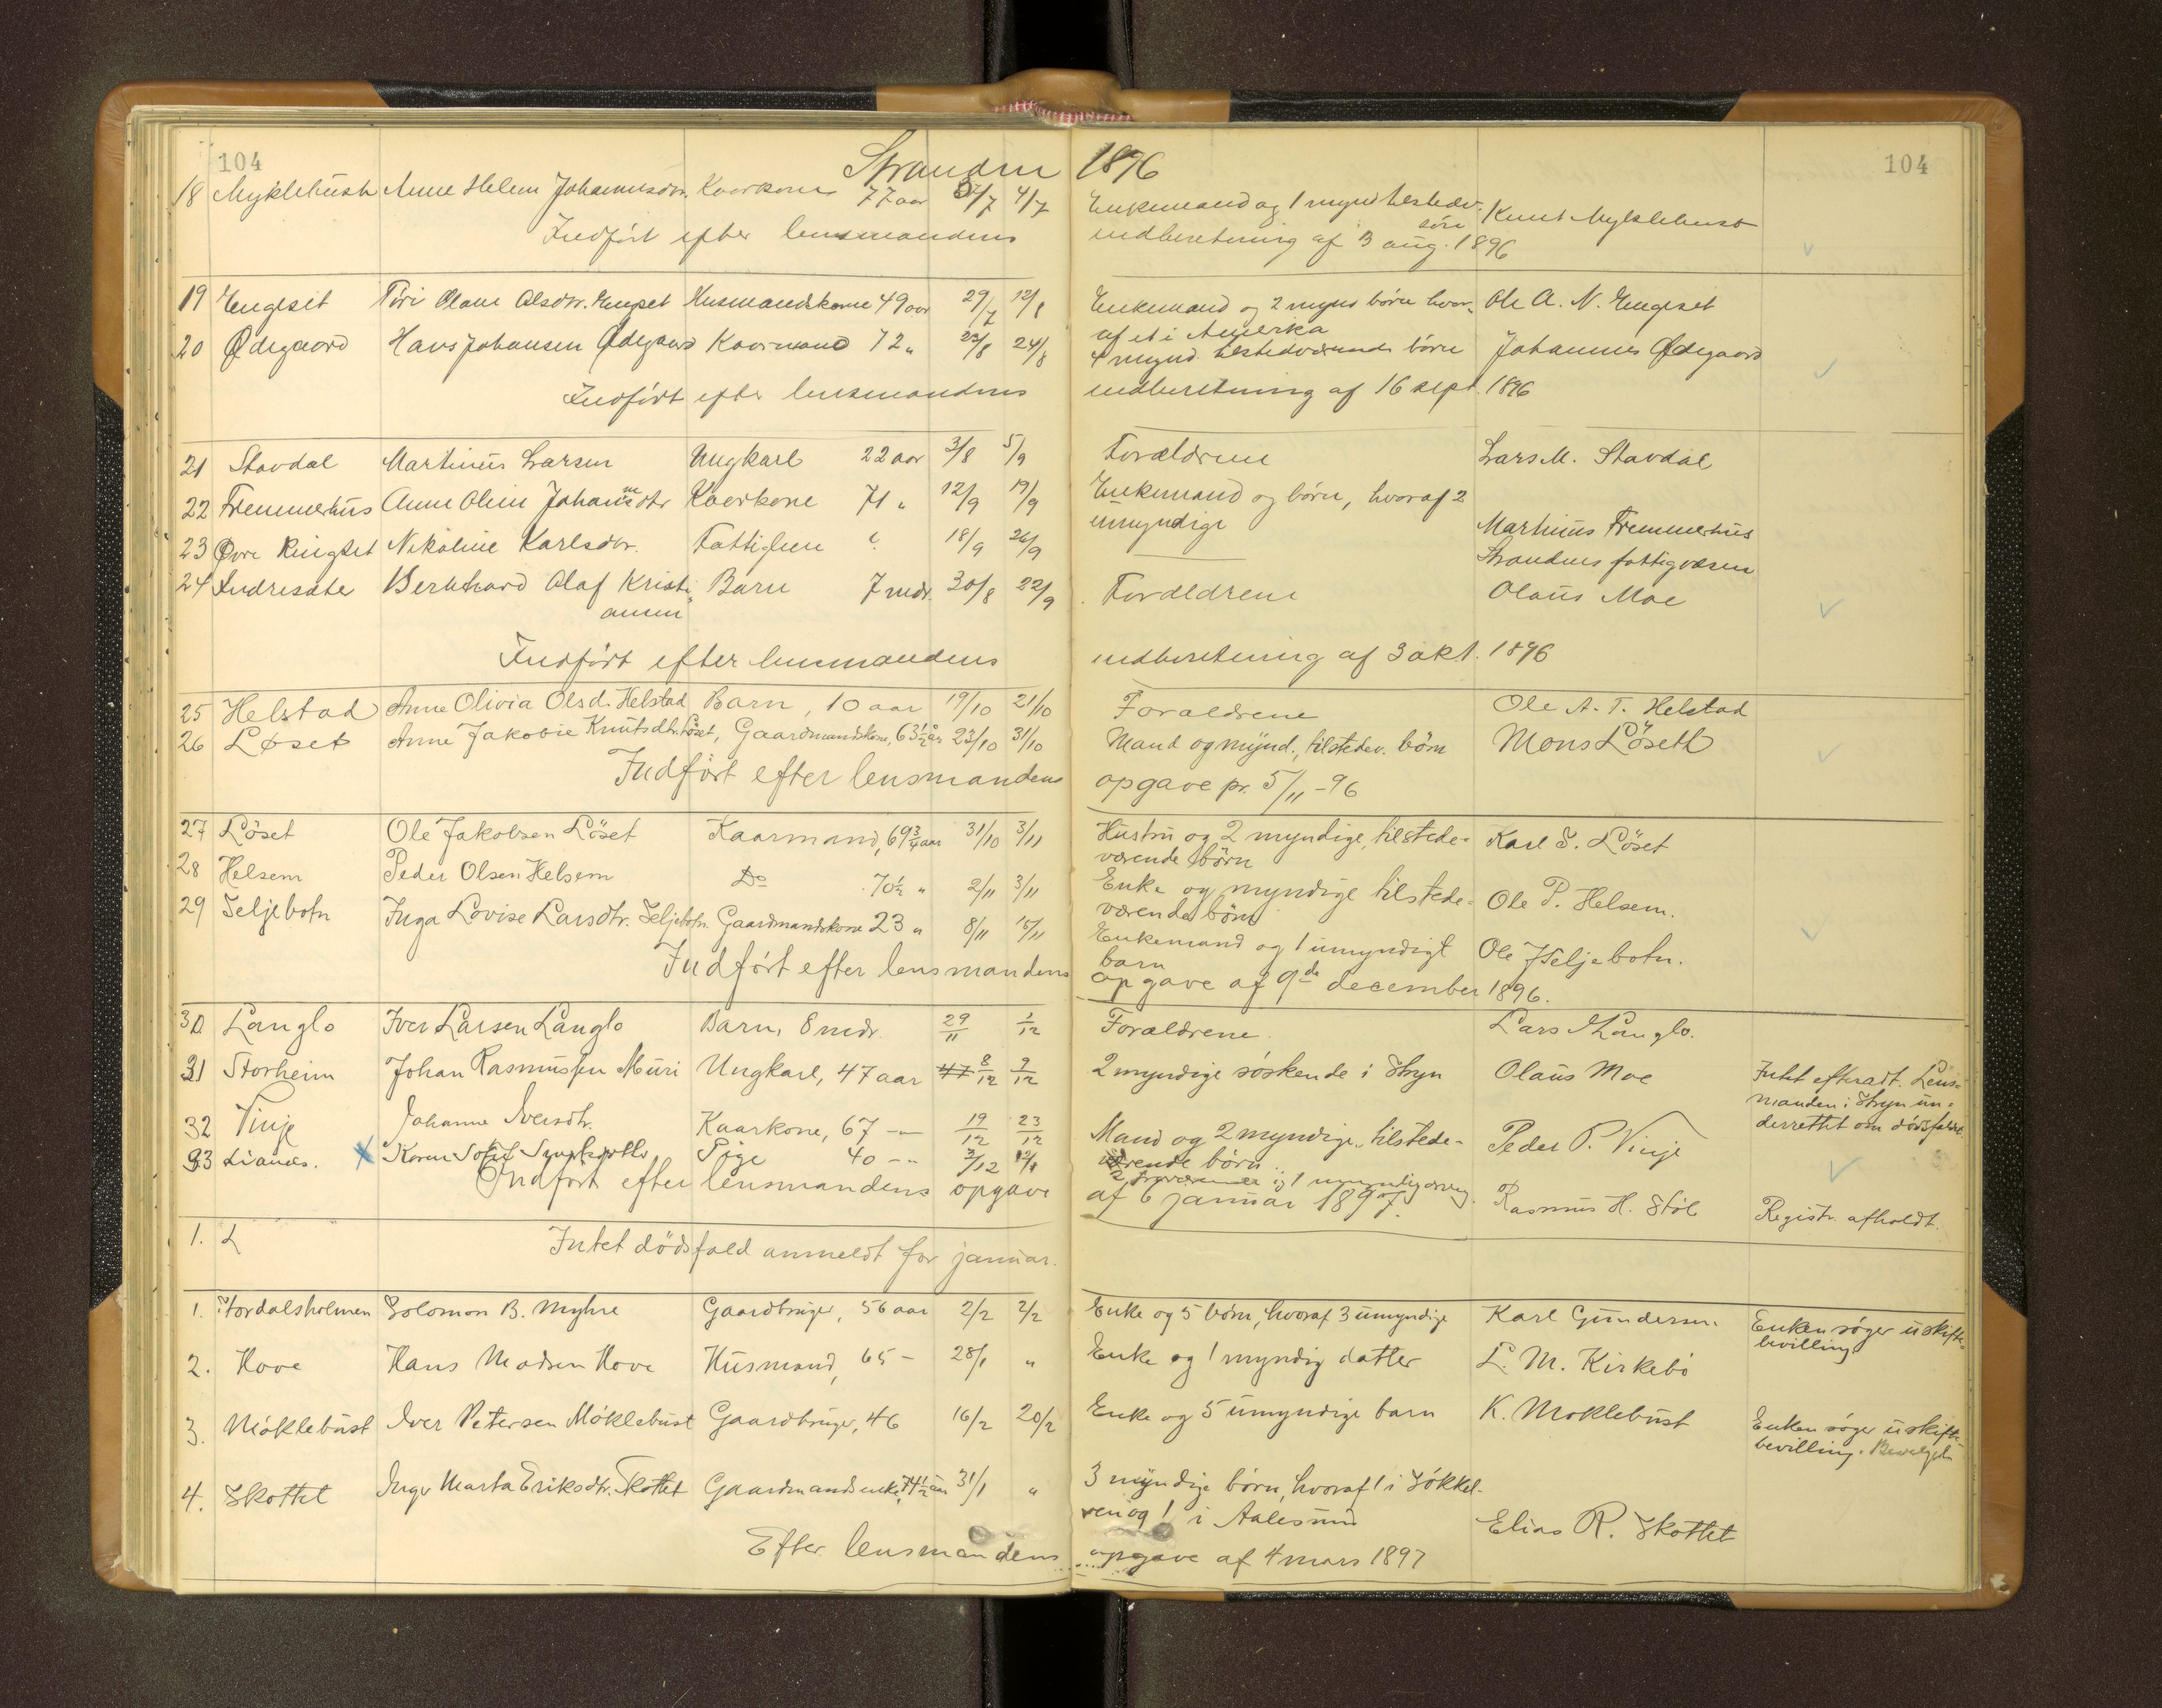 104 Stranden 1896 104
18 Myklebust Anne Helene Johannesdtr. Kaarkone 77 aar /7 4/7 Enkemand og 1 mynd tilstedev. søn Knut Myklebust
Indført efter lensmandens indberetning af 3 aug. 1896
19 Engeset Olsdtr. Engset Husmandskone 49 aar 29/7 12/8 Enkemand og 2 mynd børn hvor- Ole A. N. Engeset
af et i Amerika
20 Ødegaard Hans Johansen Ødegaard Kaarmand 72 " 23/8 24/8 4 mynd tilstedeværende børn Johannes Ødegaard
Indført efter lensmandens indberetning af 16 sept. 1896
21 Stavdal Martinus Larsen Ungkarl 22 aar 3/8 5/9 Forældrene Lars M. Stavdal
22 Fremmerhus Anne Oline Johansdtr Kaarkone 71 " 12/9 19/9 Enkemand og børn, hvoraf 2
umyndige Martinus Fremmerhus
23 Øvre Ringset Nikoline Karlsdtr. Fattiglem 18/9 26/9 — Strandens fattigvæsen
24 Indresæte Bernhard Olaf Kristi- Barn 7 mdr. 30/8 22/9 Forældrene Olaus Moe
ansen
Indført efter lensmandens indberetning af 3 okt. 1896
25 Helstad Anne Olivia Olsd. Helstad Barn, 10 aar 19/10 21/10 Forældrene Ole A. T. Helstad
26 Løset Anne Jakobie Knutsdtr. Løset, Gaardmandskone, 63½ aar 23/10 31/10 Mand og mynd. tilstedev. børn Mons Løseth
Indført efter lensmandens opgave pr. 5/11 -96
27 Löset Ole Jakobsen Löset Kaarmand, 69¾ aar 31/10 3/11 Hustru og 2 myndige, tilstede- Karl S. Löset
værende børn
28 Helsem Peder Olsen Helsem Do 70½ " 2/11 3/11 Enke og myndige tilstede- Ole P. Helsem.
værende børn
29 Seljebotn Inga Lovise Larsdtr. Seljebotn. Gaardmandskone 23 " 8/11 15/11 Enkemand og 1 umyndigt Ole Seljebotn.
barn
Indført efter lensmandens opgave af 9de december 1896.
30 Langlo Iver Larsen Langlo Barn, 8 mdr. 29/11 1/12 Forældrene. Lars Langlo.
31 Storheim Johan Rasmussen Muri Ungkarl, 47 aar 8/12 9/12 2 myndige søskende i Stryn Olaus Moe Intet efterladt. Lens-
manden i Stryn un-
derrettet om dødsfaldet.
32 Vinje Johanne Iversdtr. Kaarkone, 67 -"- 19/12 23/12 Mand og 2 myndige, tilstede- Peder P. Vinje
værende børn
33 Lianes. Karen Sofie Pige 40 -"- 3/12 Rasmus H. Støl Registr. afholdt.
Indført efter lensmandens opgave af 6 januar 1897.
1. Intet dødsfald anmeldt for januar.
1. Stordalsholmen Solomon B. Myhre Gaardbruger, 56 aar 2/2 2/2 Enke og 5 børn, hvoraf 3 umyndige Karl Gundersen. Enken søger uskifte-
bevilling
2. Hove Hans Madsen Hove Husmand, 65 - 28/1 " Enke og 1 myndig datter L. M. Kirkebö
3. Möklebust Iver Petersen Möklebust Gaardbruger, 46 16/2 20/2 Enke og 5 umyndige barn K. Moklebust Enken søger uskifte-
bevilling. Bevilget
4. Skottet Inger Marta Eriksdtr. Skottet Gaardmandsenke, 74½ aar 31/1 " 3 myndige børn, hvoraf 1 i Søkkel-
ven og 1 i Aalesund Elias R. Skottet
Efter lensmandens opgave af 4 mars 1897